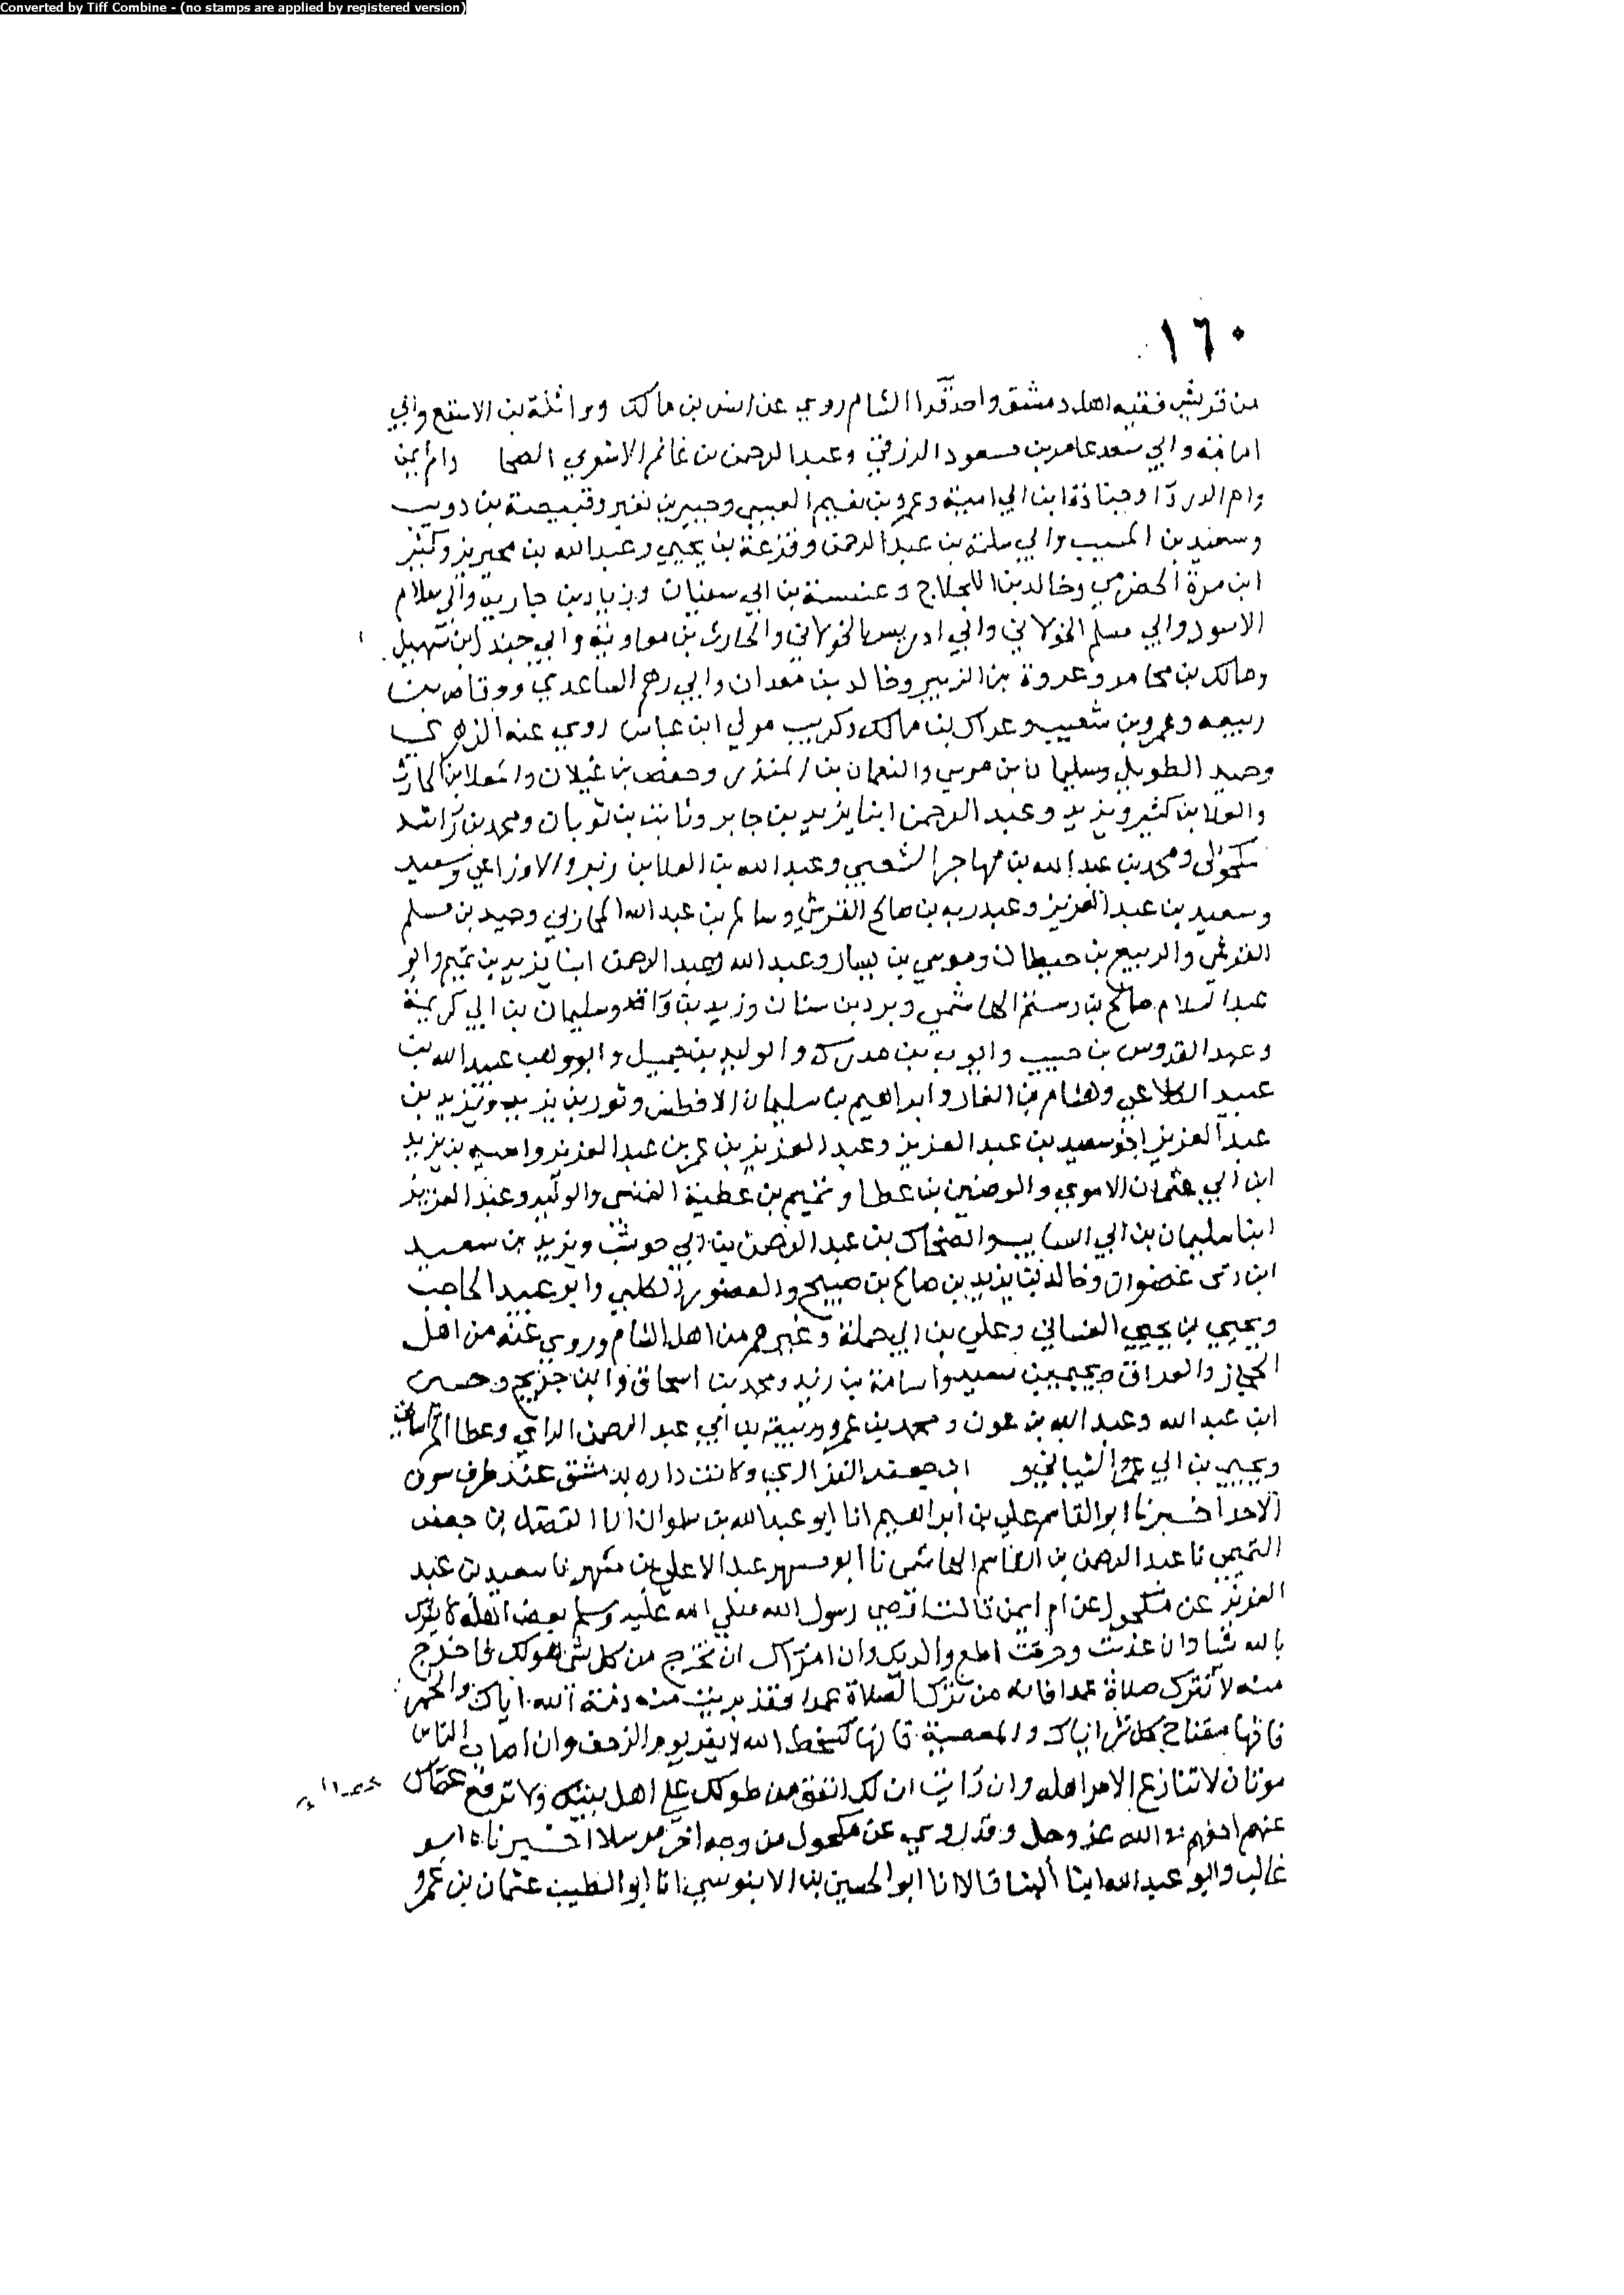 Converted by Tiff Combine - (no stamps are applied by registered version)
١٦٠
من قريش فقيه اهل دمشق واحد قرا الشام روي عن انس بن مالك وواثلة بن الاسقع وابي
امامة وابي سعد عامر بن مسعود الزرقي وعبد الرحمن بن غانم الاشعري الصحا وام ايمن
وام الدردا وجنادة ابن ابي امية وعمرو بن نعيم العبسي وجبير بن نفير وقبيصة بن ذويب
وسعيد بن المسيب وابي سلمة بن عبد الرحمن وقزعة بن يحيي وعبد الله بن محيريز وكثير
ابن مرة الحضرمي وخالد بن اللجلاج وعنبسة بن ابي سفيان وزياد بن جارية وابي سلام
الاسود وابي مسلم الخولاني وابي ادريس الخولاني والحارث بن معاوية وابي جندل بن سهيل
ومالك بن يخامر وعروة بن الزبير وخالد بن معدان وابي رهم الساعدي ووقاص بن
ربيعه وعمرو بن شعيب وعراك بن مالك وكريب مولي ابن عباس روي عنه الزهري
وحميد الطويل وسليمان بن موسي والنعمان بن المنذر وحفص بن غيلان والعلا بن الحارث
والعلا بن كثير ويزيد وعبد الرحمن ابنا يزيد بن جابر وثابت بن ثوبان ومحمد بن راشد
مكحولي ومحمد بن عبد الله بن مهاجر الشعيبي وعبد الله بن العلا بن زبر والاوزاعي وسعيد
وسعيد بن عبد العزيز وعبد ربه بن صالح القرشي وسالم بن عبد الله المحاربي وحميد بن مسلم
القرشي والربيع بن حيطان وموسي بن يسار وعبد الله وعبد الرحمن ابنا يزيد بن تميم وابو
عبد السلام صالح بن رستم الهاشمي وبرد بن سنان وزيد بن واقد وسليمان بن ابي كريمة
وعبد القدوس بن حبيب وايوب بن مدرك والوليد بن جميل وابو وهب عبيد الله بن
عبيد الكلاعي وهشام بن الغاز وابراهيم بن سليمان الافطس وثور بن يزيد ويزيد بن
عبد العزيز اخو سعيد بن عبد العزيز وعبد العزيز بن عمر بن عبد العزيز واميه بن يزيد
ابن ابي عثمان الاموي والوضين بن عطا وتميم بن عطية العنسي والوليد وعبد العزيز
ابنا سليمان بن ابي السايب والضحاك بن عبد الرحمن بن ابي حوشب ويزيد بن سعيد
ابن ذي عصوان وخالد بن يزيد بن صالح بن صبيح والعصور الكلبي وابو عبيد الحاجب
ويحيي بن يحيي الغساني وعلي بن ابي حملة وغيرهم من اهل الشام وروي عنه من اهل
الحجاز والعراق يحيي بن سعيد واسامة بن زيد ومحمد بن اسحاق وابن جريج وحسين
ابن عبد الله وعبد الله بن عون ومحمد بن عمرو وربيعة بن ابي عبد الرحمن الراي وعطا الخراساني
ويحيي بن ابي عمرو الشيباني وابو جعفر الفزاري وكانت داره بدمشق عند طرف سوق
الاحد اخبرنا ابو القاسم علي بن ابراهيم انا ابو عبد الله بن سلوان انا الفضل بن جعفر
التميمي نا عبد الرحمن بن القاسم الهاشمي نا ابو مسهر عبد الاعلي بن مسهر نا سعيد بن عبد
العزيز عن مكحول عن ام ايمن قالت اوصي رسول الله صلي الله عليه وسلم بعض اهله لا تشرك
بالله شيا وان عذبت وحرقت اطع والديك وان امراك ان تخرج من كل شي هو لك فاخرج
منه لا تترك صلاة عمدا فانه من ترك الصلاة عمدا فقد بريت منه ذمة الله اياك والخمر
فانها مفتاح كل شر اياك والمعصية فانها لسخط الله لا تفر يوم الزحف وان اصاب الناس
موتان لا تنازع الامر اهله وان رايت ان لك انفق من طولك علي اهل بيتك ولا ترفع عصاك
عنهم اخفهم في الله عز وجل وقد روي عن مكحول من وجه اخر مرسلا اخبرناه ابو
غالب وابو عبد الله ابنا البنا قالا انا ابو الحسين بن الابنوسي انا ابو الطيب عثمان بن عمرو